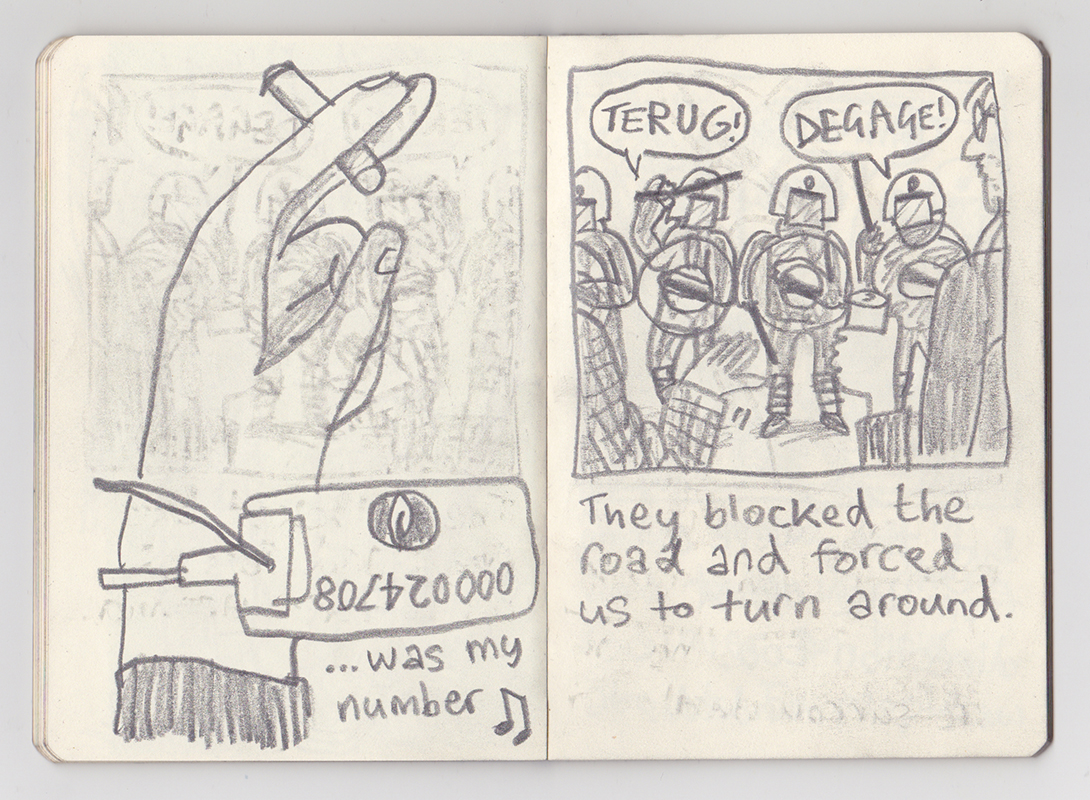 000024708
...was my
number
TERUG!
DEGAGE!
They blocked the
road and forced
us to turn around.